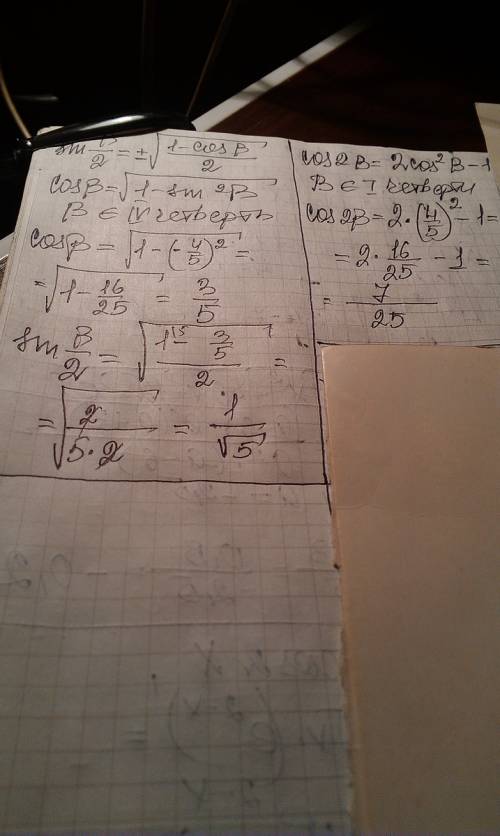 sin B/2 = ±√((1-cos B)/2)
cos B = √(1-sin²B)
B ∈ IV четверть
cos B = √(1-(-4/5)²) =
= √(1-16/25) = 3/5
sin B/2 = √((1-3/5)/2) =
= √(2/(5·2)) = 1/√5
cos2B = 2cos²B-1
B ∈ I четверти
cos2B = 2·(4/5)²-1=
= 2·16/25 - 1 =
= 7/25